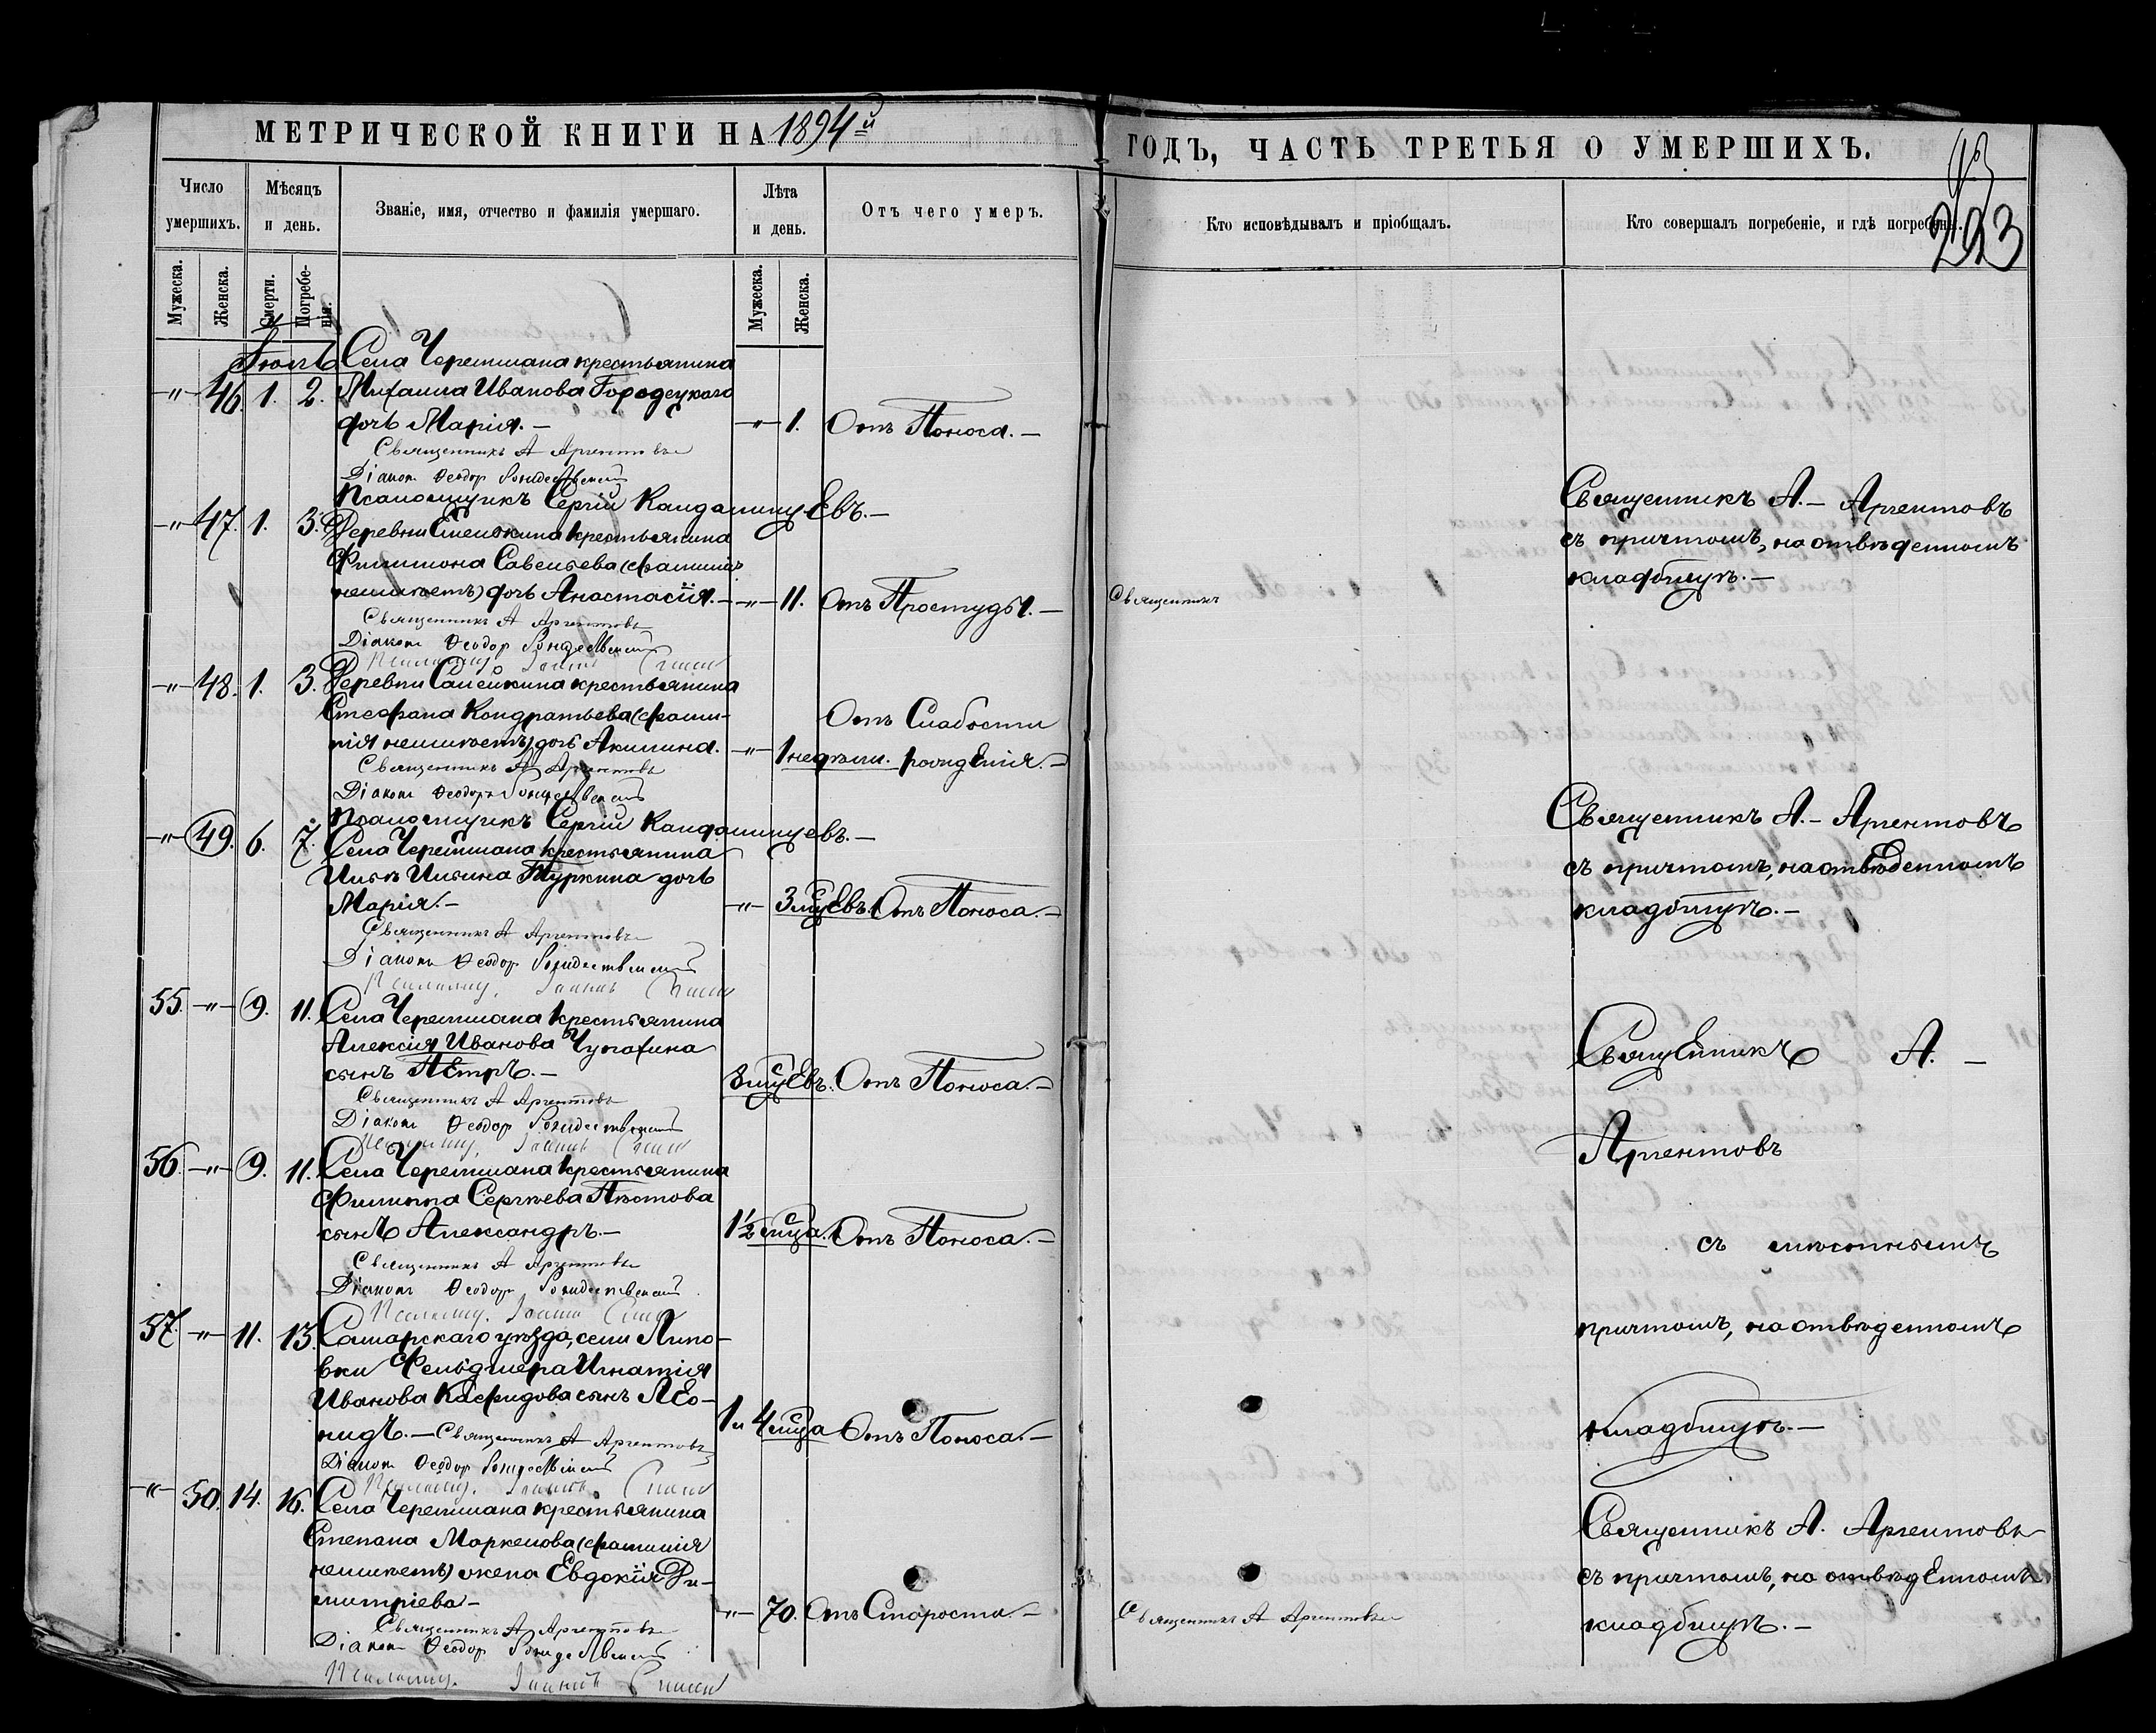 МЕТРИЧЕСКОЙ КНИГИ НА 1894й
ГОДЪ, ЧАСТЬ ТРЕТЬЯ О УМЕРШИХЪ.
223
Число умершихъ.
Мѣсяцъ и день.
Званіе, имя, отчество и фамилія умершаго.
Лѣта и день.
Отъ чего умеръ.
Кто исповѣдывалъ и пріобщалъ.
Кто совершалъ погребеніе, и гдѣ погребены.
Мужеска.
Женска.
Смерти.
Погребенія.
Мужеска.
Женска.
Іюль Села Черемшана крестьянина
-"- 46. 1. 2. Михаила Иванова Городецкаго
дочь Марія. — -"- 1. Отъ Поноса. —
Священникъ А Аргентовъ
Діаконъ Ѳеодор Рождественскій
Псаломщикъ Сергій Кандалинцевъ. —
Священникъ А. — Аргентовъ
съ причтомъ, на отвѣденномъ
кладбищѣ. —
-"- 47. 1. 3. Деревни Емелькина крестьянина
Филимона Савельева (фамиліи
неимѣетъ) дочь Анастасія. — -"- 11. Отъ Простуды. — Священникъ
Священникъ А Аргентовъ
Діаконъ Ѳеодор Рождественскій
Псаломщ. Іаннъ
-"- 48. 1. 3. Деревни Салейкина крестьянина
Стефана Кондратьева (фами-
лія неимѣетъ) дочь Акилина. — -"- 1 недѣли. Отъ Слабости
рожденія. —
Священникъ А Аргентовъ
Діаконъ Ѳеодоръ Рождественскій
Псаломщикъ Сергій Кандалинцевъ. —
Священникъ А. — Аргентовъ
съ причтомъ, на отвѣденномъ
кладбищѣ. —
-"- 49. 6. 7. Села Черемшана крестьянина
Ильи Ильина Туркина дочь
Марія. — -"- 3 мцевъ. Отъ Поноса. —
Священникъ А Аргентовъ
Діаконъ Ѳеодор Рождественскій
Псаломщ. Іаннъ
55. -"- 9. 11. Села Черемшана крестьянина
Алексія Иванова
сынъ Петръ. — 8 мцевъ. Отъ Поноса. —
Священникъ А Аргентовъ
Діаконъ Ѳеодор Рождественскій
Псаломщ. Іаннъ
Священникъ А. —
Аргентовъ
съ мѣстнымъ
причтомъ, на отвѣденномъ
кладбищѣ. —
56. -"- 9. 11. Села Черемшана крестьянина
Филиппа Сергѣева Пѣстова
сынъ Александръ. — 1½ мца. Отъ Поноса. —
Священникъ А Аргентовъ
Діаконъ Ѳеодор Рождественскій
Псаломщ. Іаннъ
57. -"- 11. 13. Самарскаго уѣзда, села Липо-
вки Фельдшера Игнатія
Иванова сынъ Лео-
нидъ. — 1 и 4 мца Отъ Поноса. —
Священникъ А Аргентовъ
Діаконъ Ѳеодор Рождественскій
Псаломщ. Іаннъ
-"- 50. 14. 16. Села Черемшана крестьянина
Степана Маркелова (фамилія
неимѣетъ) жена Евдокія Ди-
митріева — -"- 70. Отъ Старости. — Священникъ А Аргентовъ
Священникъ А Аргентовъ
Діаконъ Ѳеодор Рождественскій
Псаломщ. Іаннъ
Священникъ А. Аргентовъ
съ причтомъ, на отвѣденномъ
кладбищѣ. —